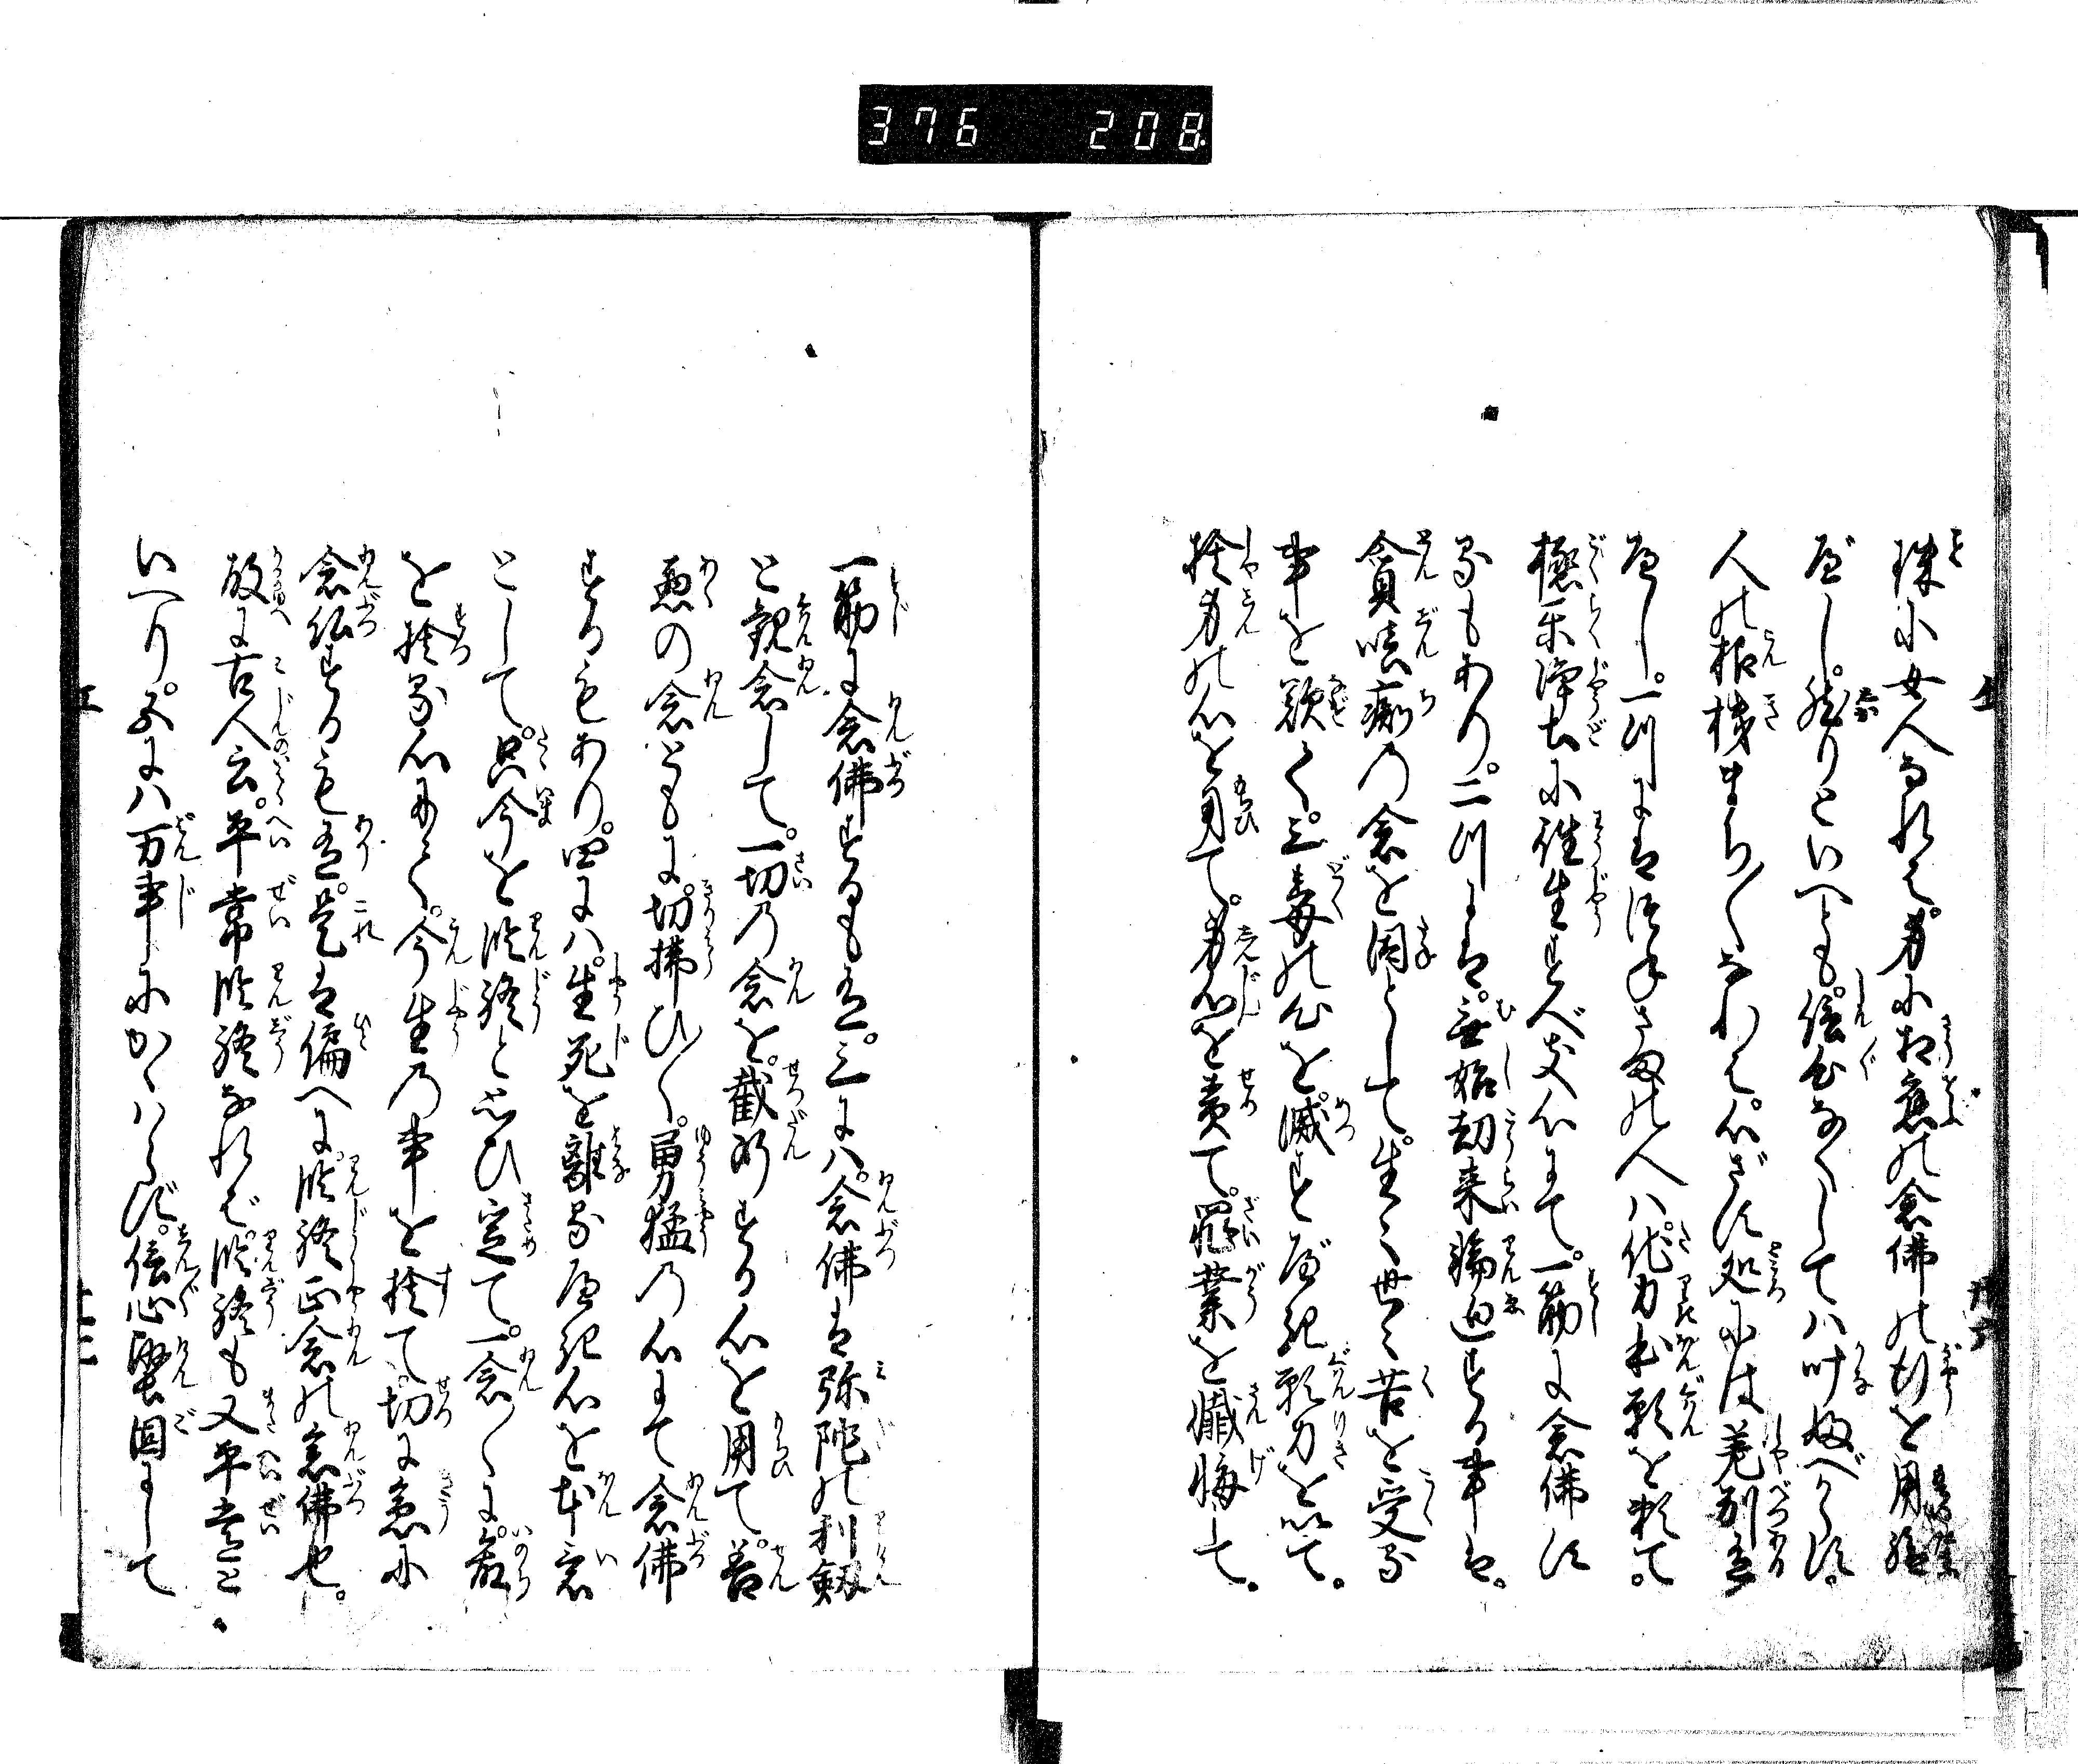 376 208
殊に女人なれば。身に相應の念佛の行を用給
べし。然りといへども。信心なくしてハ叶ふべからず。
人の根機まち〳〵なれば。心ざす処には差別有
べし。一川には後手さ の人ハ。他力本願を頼て。
極楽浄土に往生すべき心にて。一筋に念佛す
るもあり。二川には。無始劫来輪廻する事は。
貪嗔癡の念を因として。生々世々苦を受る
事を歎く。三毒の心を。滅すべき願力を以て。
捨身の心を用て。身心を責て。罪業を懺悔して。
一筋に念佛するも有。三にハ。念佛は弥陀の利剱
と観念して。一切の念を。截断する心を用て。善
悪の念ともに。切拂ひ〳〵。勇猛の心にて念佛
するもあり。四にハ。生死を離るべき心を本意
として。只今を臨終と思ひ定て。一念〳〵に。命
を捨る心にて。今生の事を捨て。切に急に
念仏するも有。是は偏へに。臨終正念の念佛也。
故に古人云。平常臨終なれば。臨終も又平常と
いへり。次にハ万事にかゝハらず。信心堅固にして